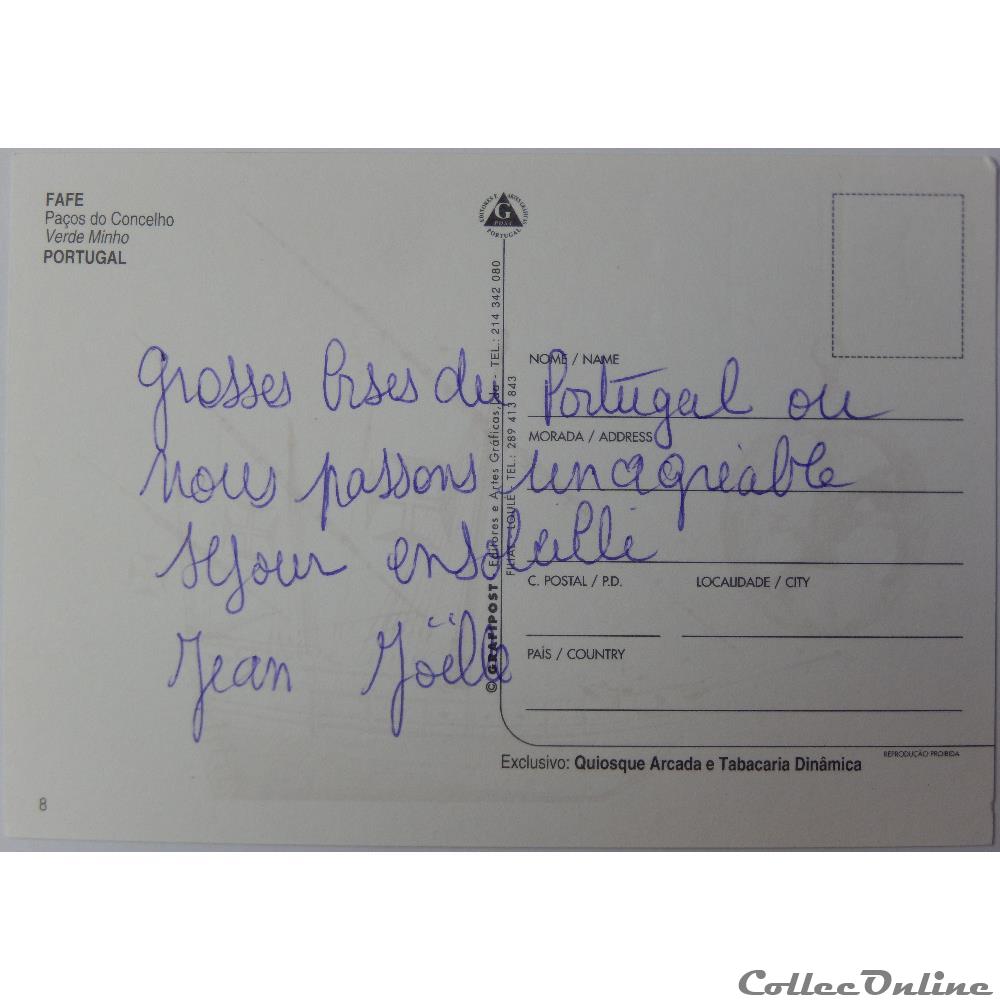 FAFE
Paços do Concelho
Verde Minho
PORTUGAL
EDITORES E ARTES GRÁFICAS
G
POST
PORTUGAL
Grosses bises du Portugal ou
nous passons un agréable
séjour ensoleillé
Jean Joëlle
© GRAFIPOST - Editores e Artes Gráficas, lda - TEL.: 214 342 080
FILIAL LOULÉ TEL.: 289 413 843
NOME / NAME
MORADA / ADDRESS
C. POSTAL / P.D.
LOCALIDADE / CITY
PAÍS / COUNTRY
REPRODUÇÃO PROIBIDA
Exclusivo: Quiosque Arcada e Tabacaria Dinâmica
8
CollecOnline